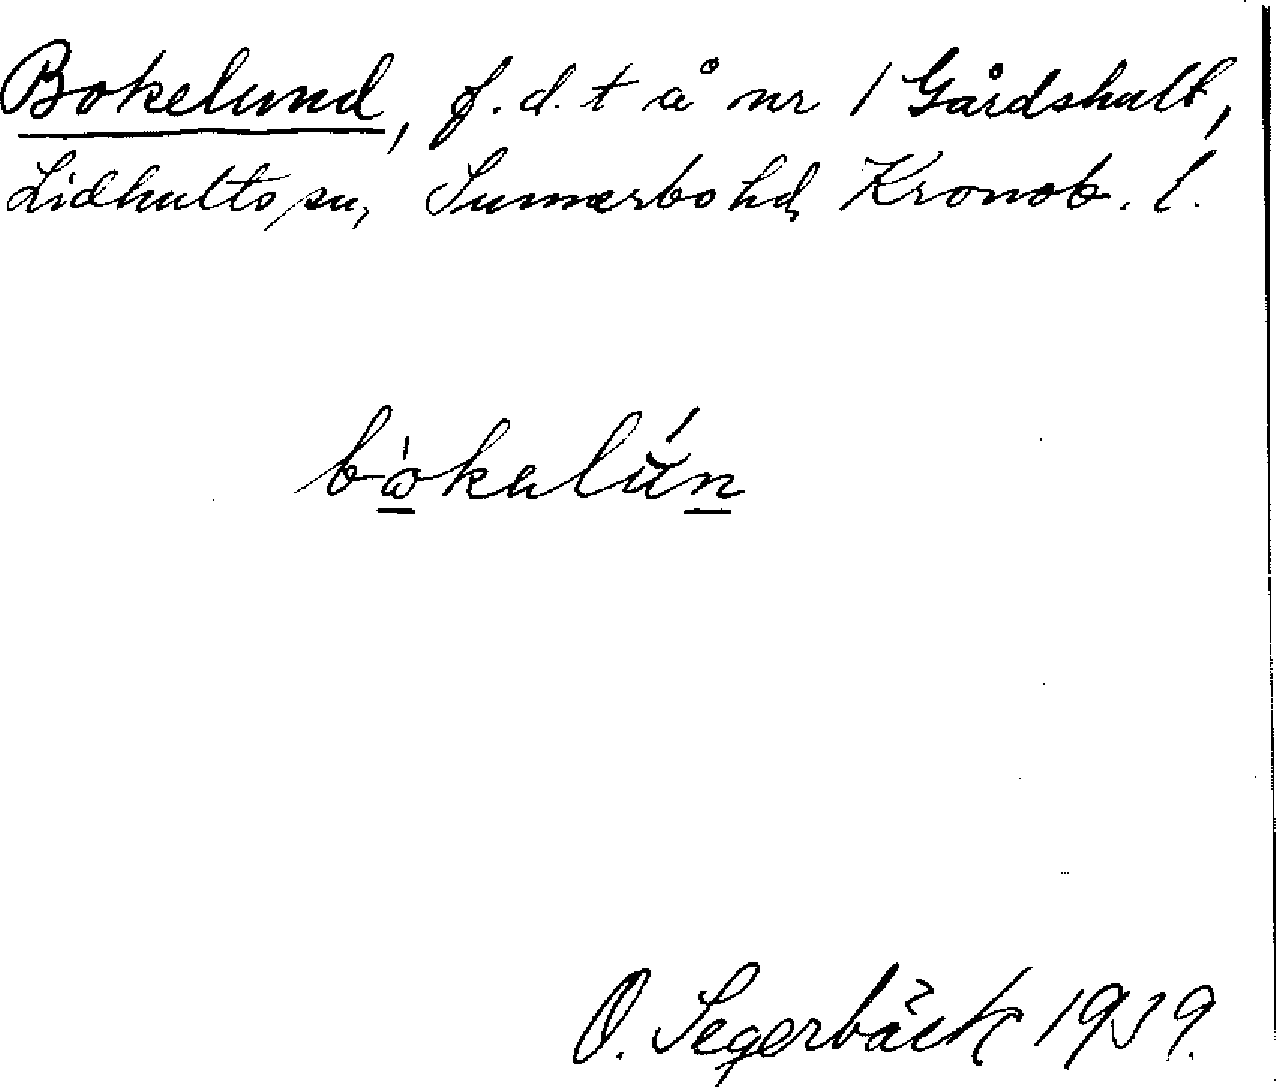 Bokelund, f.d. t å nr 1 Gårdshult,
Lidhults sn, Sunnerbo hd, Kronob. l.
bòkalún
O. Segerbäck 1939.